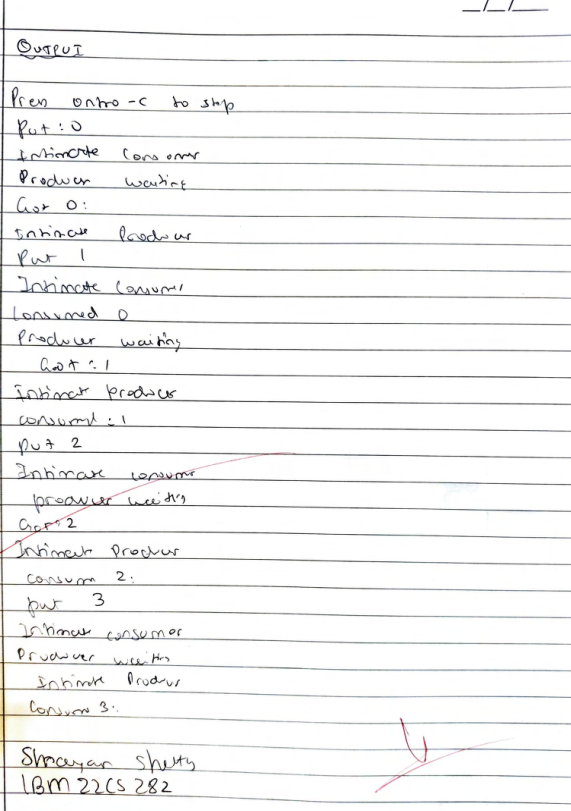 _/_/__
OUTPUT
Press ontro-c to stop
Put : 0
Intimate Consumer
Producer waiting
Got 0:
Intimate Producer
Put 1
Intimate Consumer
Consumed 0
Producer waiting
Got : 1
Intimate producer
consumed : 1
put 2
Intimate consumer
producer waiting
Got : 2
Intimate Producer
consum 2:
put 3
Intimate consumer
Producer waiting
Intimate Producer
Consum 3:
Shetty
1BM22CS282